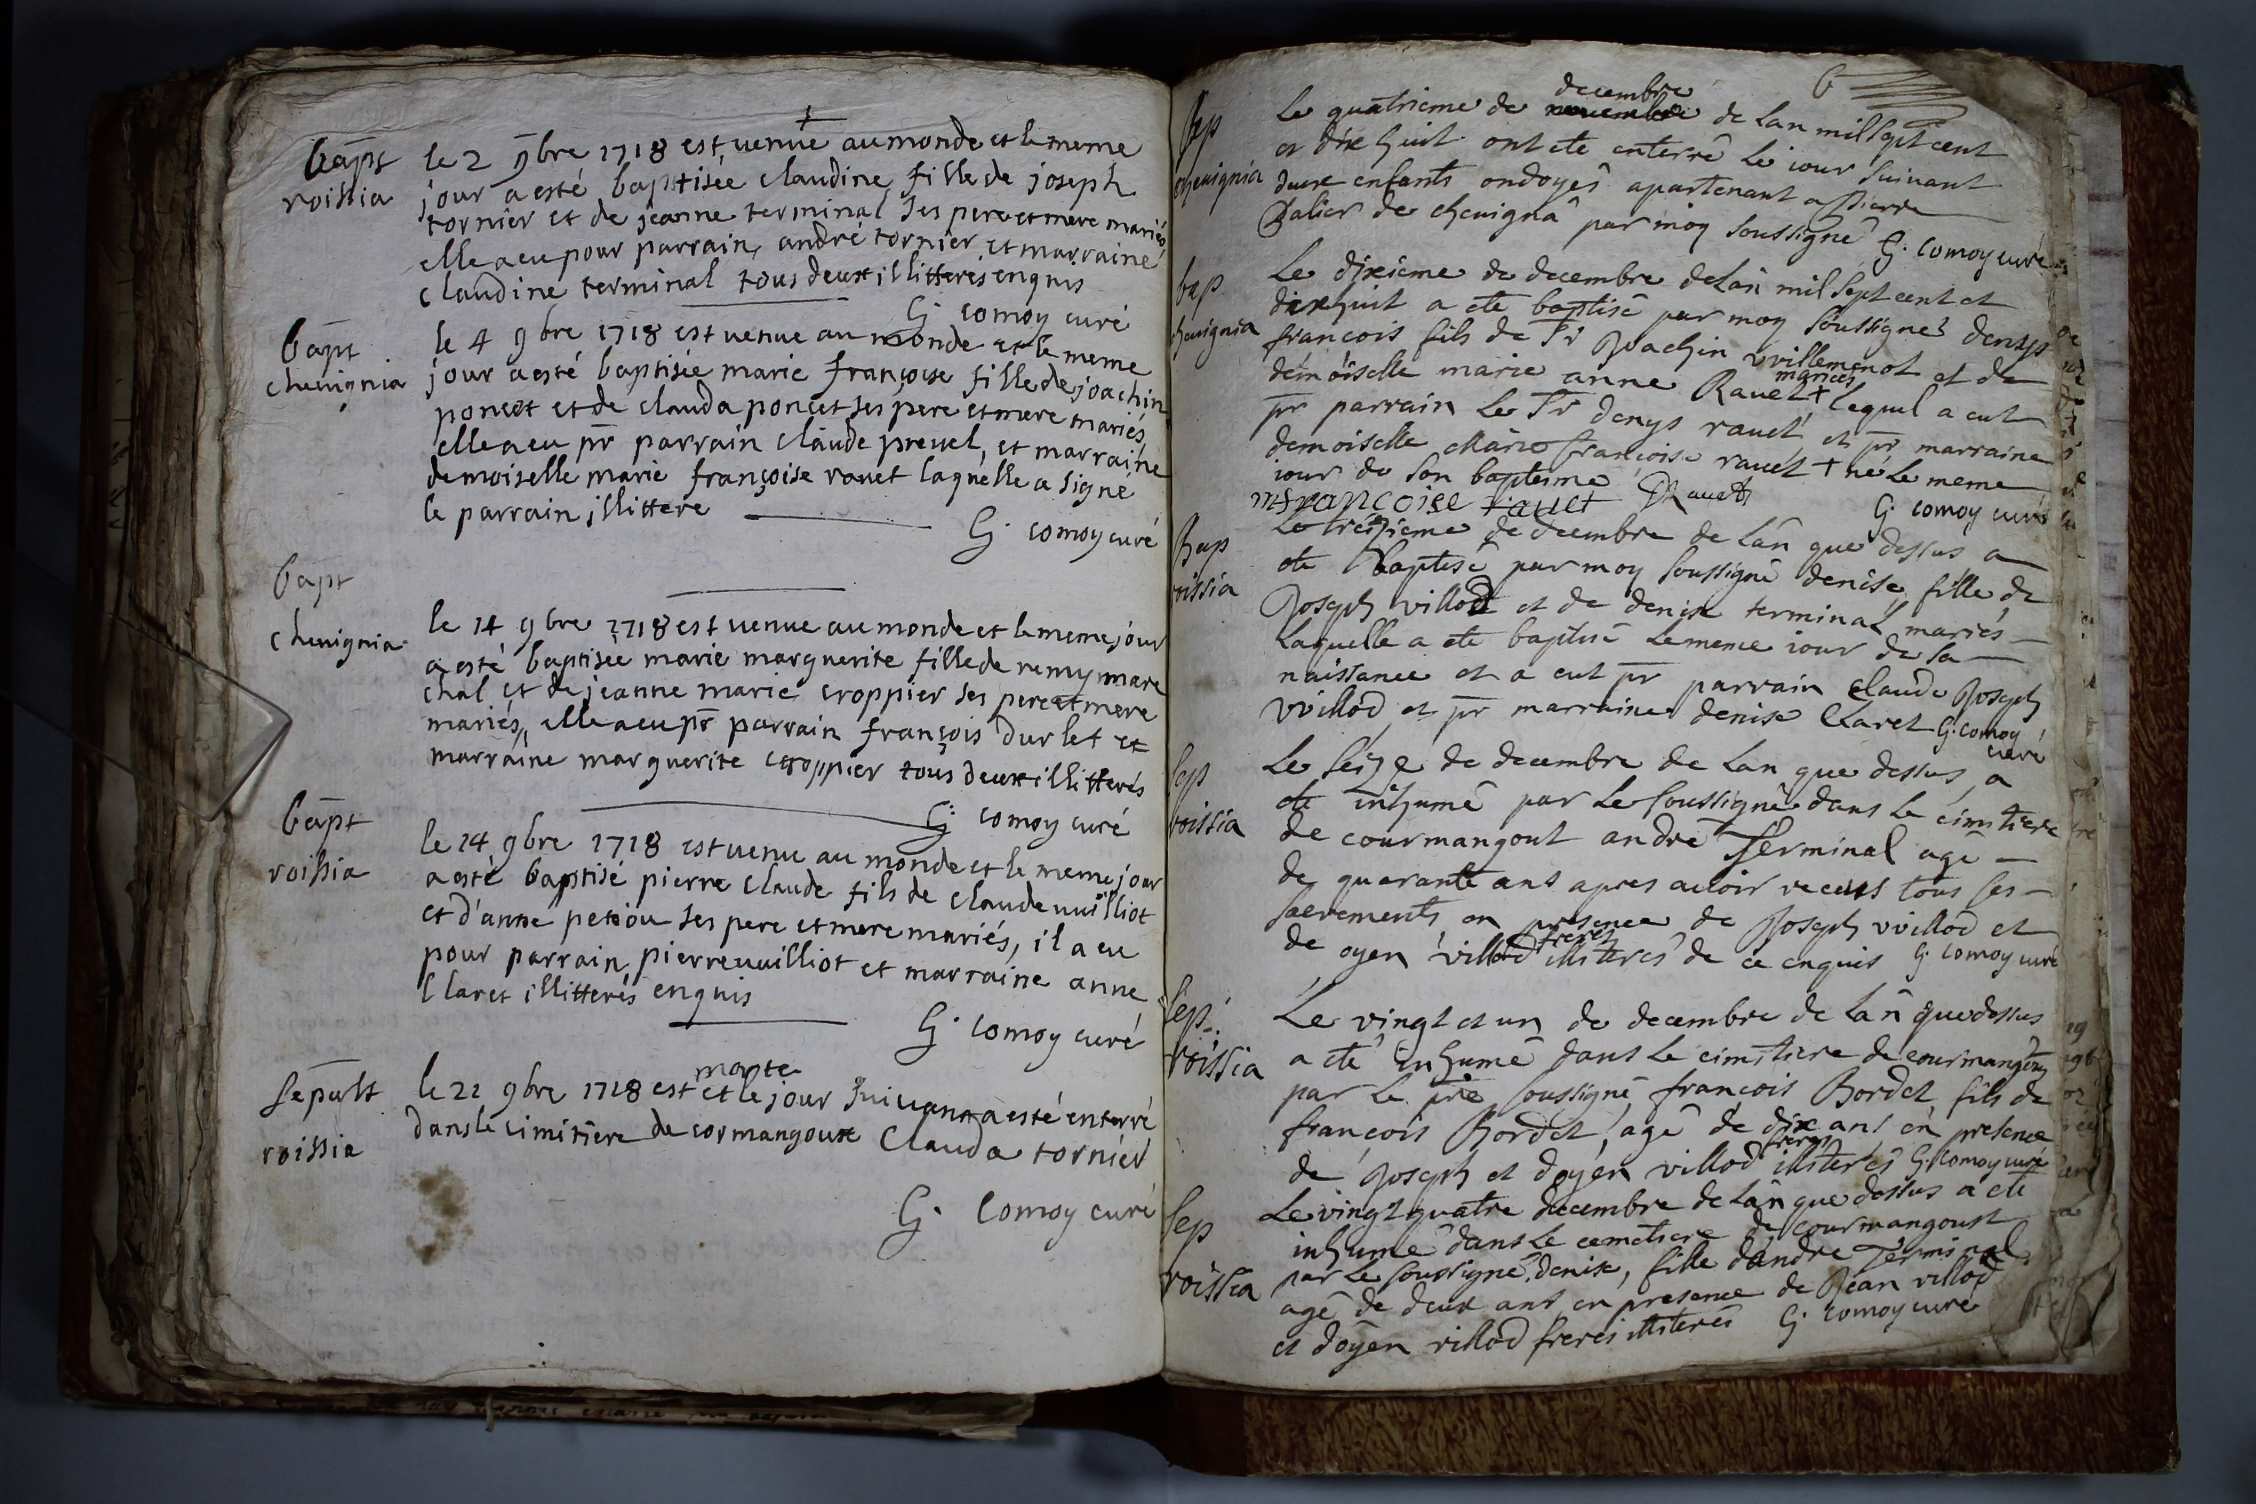 bapt
roissia
le 2 9bre 1718 est venue au monde et le meme
jour a esté baptisée claudine fille de joseph
tornier et de jeanne terminal ses pere et mere mariés
elle a eu pour parrain andré tornier et marraine
claudine terminal tous deux illitterés enquis
G. comoy curé
bapt
chevignia
le 4 9bre 1718 est venue au monde et le meme
jour a esté baptisée marie françoise fille de joachin
poncet et de clauda poncet ses pere et mere mariés,
elle a eu pr parrain claude prevel, et marraine
demoiselle marie françoise ravet laquelle a signé
le parrain illittere
G. comoy curé
bapt
chevignia
le 14 9bre 1718 est venue au monde et le meme jour
a esté baptisée marie marguerite fille de remy mare
chal et de jeanne marie croppier ses pere et mere
mariés, elle a eu pr parrain françois durlet et
marraine marguerite croppier tous deux illitterés
G. comoy curé
bapt
roissia
le 14 9bre 1718 est venu au monde et le meme jour
a esté baptisé pierre claude fils de claude vuilliot
et d'anne petiou ses pere et mere mariés, il a eu
pour parrain pierre vuilliot et marraine anne
Claret illitterés enquis
G. comoy curé
sepult
roissia
morte
le 21 9bre 1718 est et le jour suivant a esté enterré
dans le cimitiere de cormangoux Clauda tornier
G. Comoy curé
6
Sep
chevignia
decembre
Le quatrieme de novembre de lan mil sept cent
et dix huit ont ete enterré le iour suivant
deux enfants ondoyés apartenant a Pierre
Palier de chevigna par moy soussigné G. comoy curé
bap
chevignia
Le dixieme de decembre de lan mil sept cent et
dixhuit a ete baptisé par moy soussigné denys
francois fils de Sr Joachin vvillemenot et de
mariés
demoiselle marie anne Ravet + lequel a eut
pr parrain le Sr denys ravet et pr marraine
demoiselle Marie francoise ravet + né le meme
iour de son baptesme
m françoise ravet DRavet G. comoy curé
Bap
roissia
Le treizieme de decembre de lan que dessus a
ete baptisé par moy soussigné denise fille de
Joseph villod et de denise terminal mariés
laquelle a ete baptisé le meme iour de sa
naissance et a eut pr parrain claude Joseph
vvillod et pr marraine denise Claret G. comoy
curé
Sep
roissia
Le seize de decembre de lan que dessus a
ete inhumé par le soussigné dans le cimitiere
de courmangout andré Terminal agé
de quarante ans apres avoir receus tous ses
sacrements en presence de Joseph vvillod et
freres
de oyen villod illiteres de ce enquis G. comoy curé
Sep.
roissia
Le vingt et un de decembre de lan que dessus
a eté inhumé dans le cimitiere de courmangoux
par le pre soussigné francois Bordet fils de
francois Bordet, agé de dix ans en presence
freres
de Joseph et doyen villod illiterés G. comoy curé
Sep
roissia
Le vingt quatre decembre de lan que dessus a ete
inhumé dans le cemetiere de courmangoust
par le soussigné denise, fille dandre Terminal
agé de deux ans en presence de Jean villod
et doyen villod freres illiterés G. comoy curé